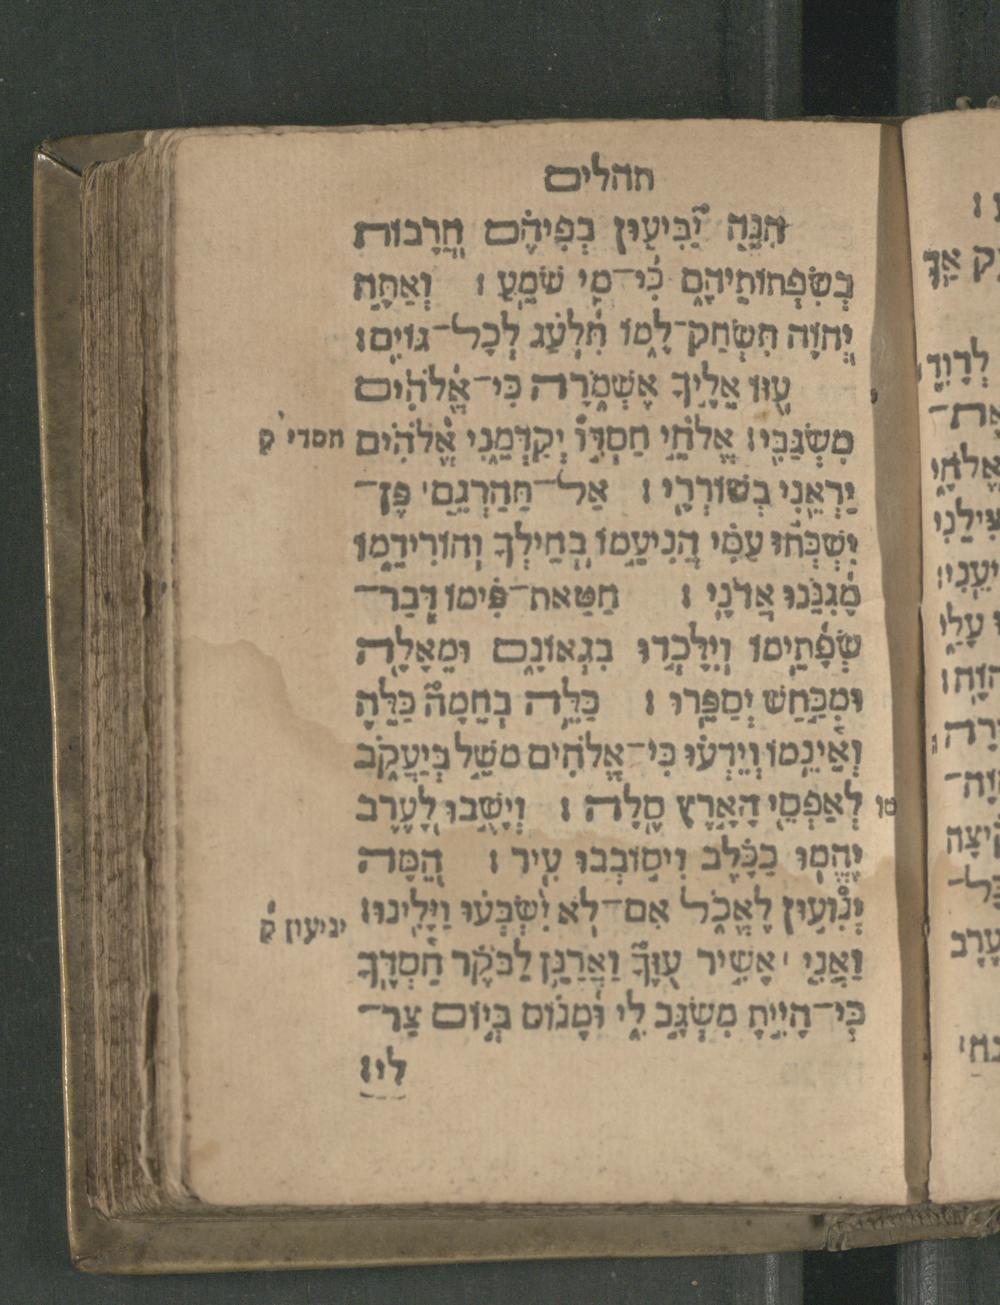 תהלים
הִנֵּה יַבִּיעוּן בְּפִיהֶם חֲרָבוֹת
בְּשִׂפְתוֹתֵיהֶם כִּי־מִי שֹׁמֵעַ : וְאַתָּה
יְהוָה תִּשְׂחַק־לָמוֹ תִּלְעַג לְכָל־גּוֹיִם :
עֻזּוֹ אֵלֶיךָ אֶשְׁמֹרָה כִּי־אֱלֹהִים
מִשְׂגַּבִּי : אֱלֹהֵי חַסְדּוֹ יְקַדְּמֵנִי אֱלֹהִים
חסדי ק
יַרְאֵנִי בְשׁוֹרְרָי : אַל־תַּהַרְגֵם פֶּן־
יִשְׁכְּחוּ עַמִּי הֲנִיעֵמוֹ בְחֵילְךָ וְהוֹרִידֵמוֹ
מָגִנֵּנוּ אֲדֹנָי : חַטַּאת־פִּימוֹ דְּבַר־
שְׂפָתֵימוֹ וְיִלָּכְדוּ בִגְאוֹנָם וּמֵאָלָה
וּמִכַּחַשׁ יְסַפֵּרוּ : כַּלֵּה בְחֵמָה כַּלֵּה
וְאֵינֵמוֹ וְיֵדְעוּ כִּי־אֱלֹהִים מֹשֵׁל בְּיַעֲקֹב
לְאַפְסֵי הָאָרֶץ סֶלָה : וְיָשֻׁבוּ לָעֶרֶב
טו
יֶהֱמוּ כַכָּלֶב וִיסוֹבְבוּ עִיר : הֵמָּה
יְנִועוּן לֶאֱכֹל אִם־לֹא יִשְׂבְּעוּ וַיָּלִינוּ :
יניעון ק
וַאֲנִי אָשִׁיר עֻזֶּךָ וַאֲרַנֵּן לַבֹּקֶר חַסְדֶּךָ
כִּי־הָיִיתָ מִשְׂגָּב לִי וּמָנוֹס בְּיוֹם צַר־
לִי :